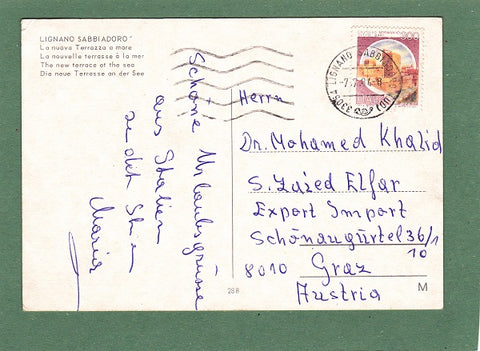 LIGNANO SABBIADORO
La nuova Terrazza a mare
La nouvelle terrasse à la mer
The new terrace at the sea
Die neue Terrasse an der See
Schöne Urlaubsgrüsse
aus Italien
sendet Ihnen
Maria
Herrn
Dr. Mohamed Khalid
S. Zaied Elfar
Export Import
Schönaugürtel 36/1
10
8010 Graz
Austria
288
M